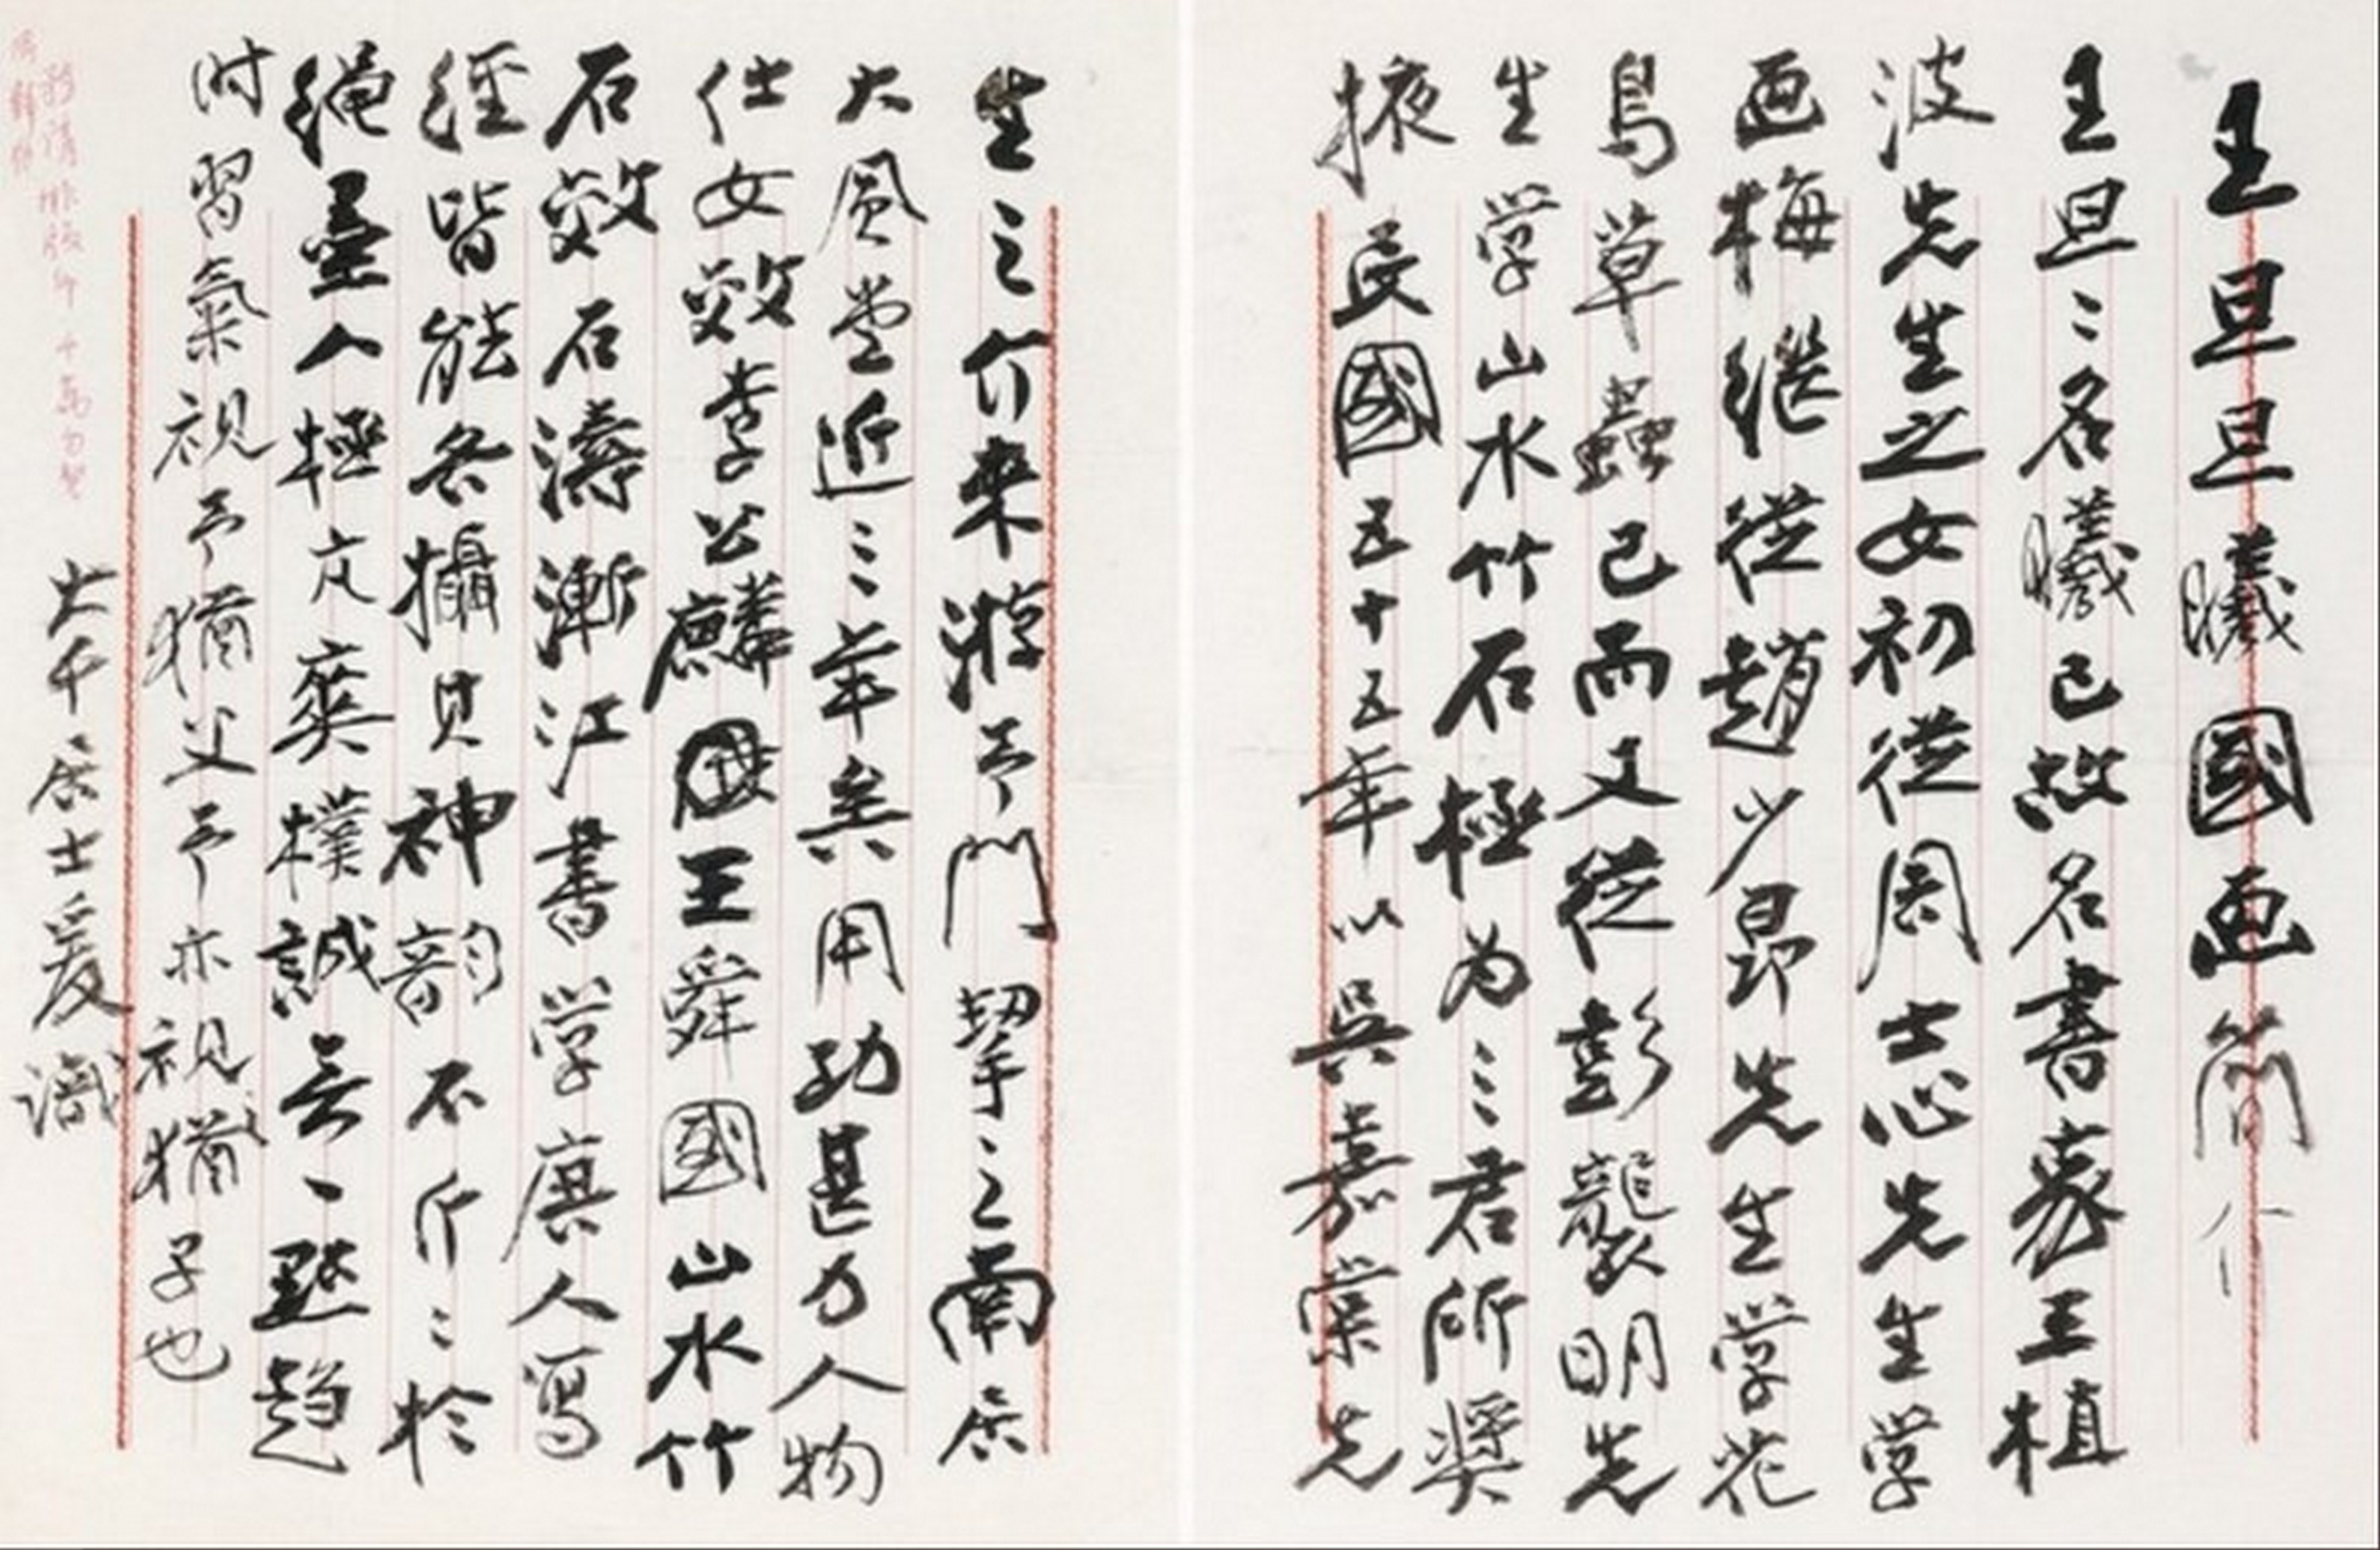 王旦旦曦國画簡介
王旦旦名曦已故名書家王植
波先生之女初從周士心先生学
画梅継從趙少昂先生学花
鳥草蟲已而又從彭襲明先
生学山水竹石極为三君所奨
掖民國五十五年以吳嘉棠先
生之介来游予門挈之南居
大風堂近三年矣用功甚力人物
仕女效李公麟王舜國山水竹
石效石濤漸江書学唐人寫
經皆能各攝其神韵不斤斤於
繩墨人極亢爽樸誠无一點趨
时習氣視予猶父予亦視猶子也
大千居士爰識